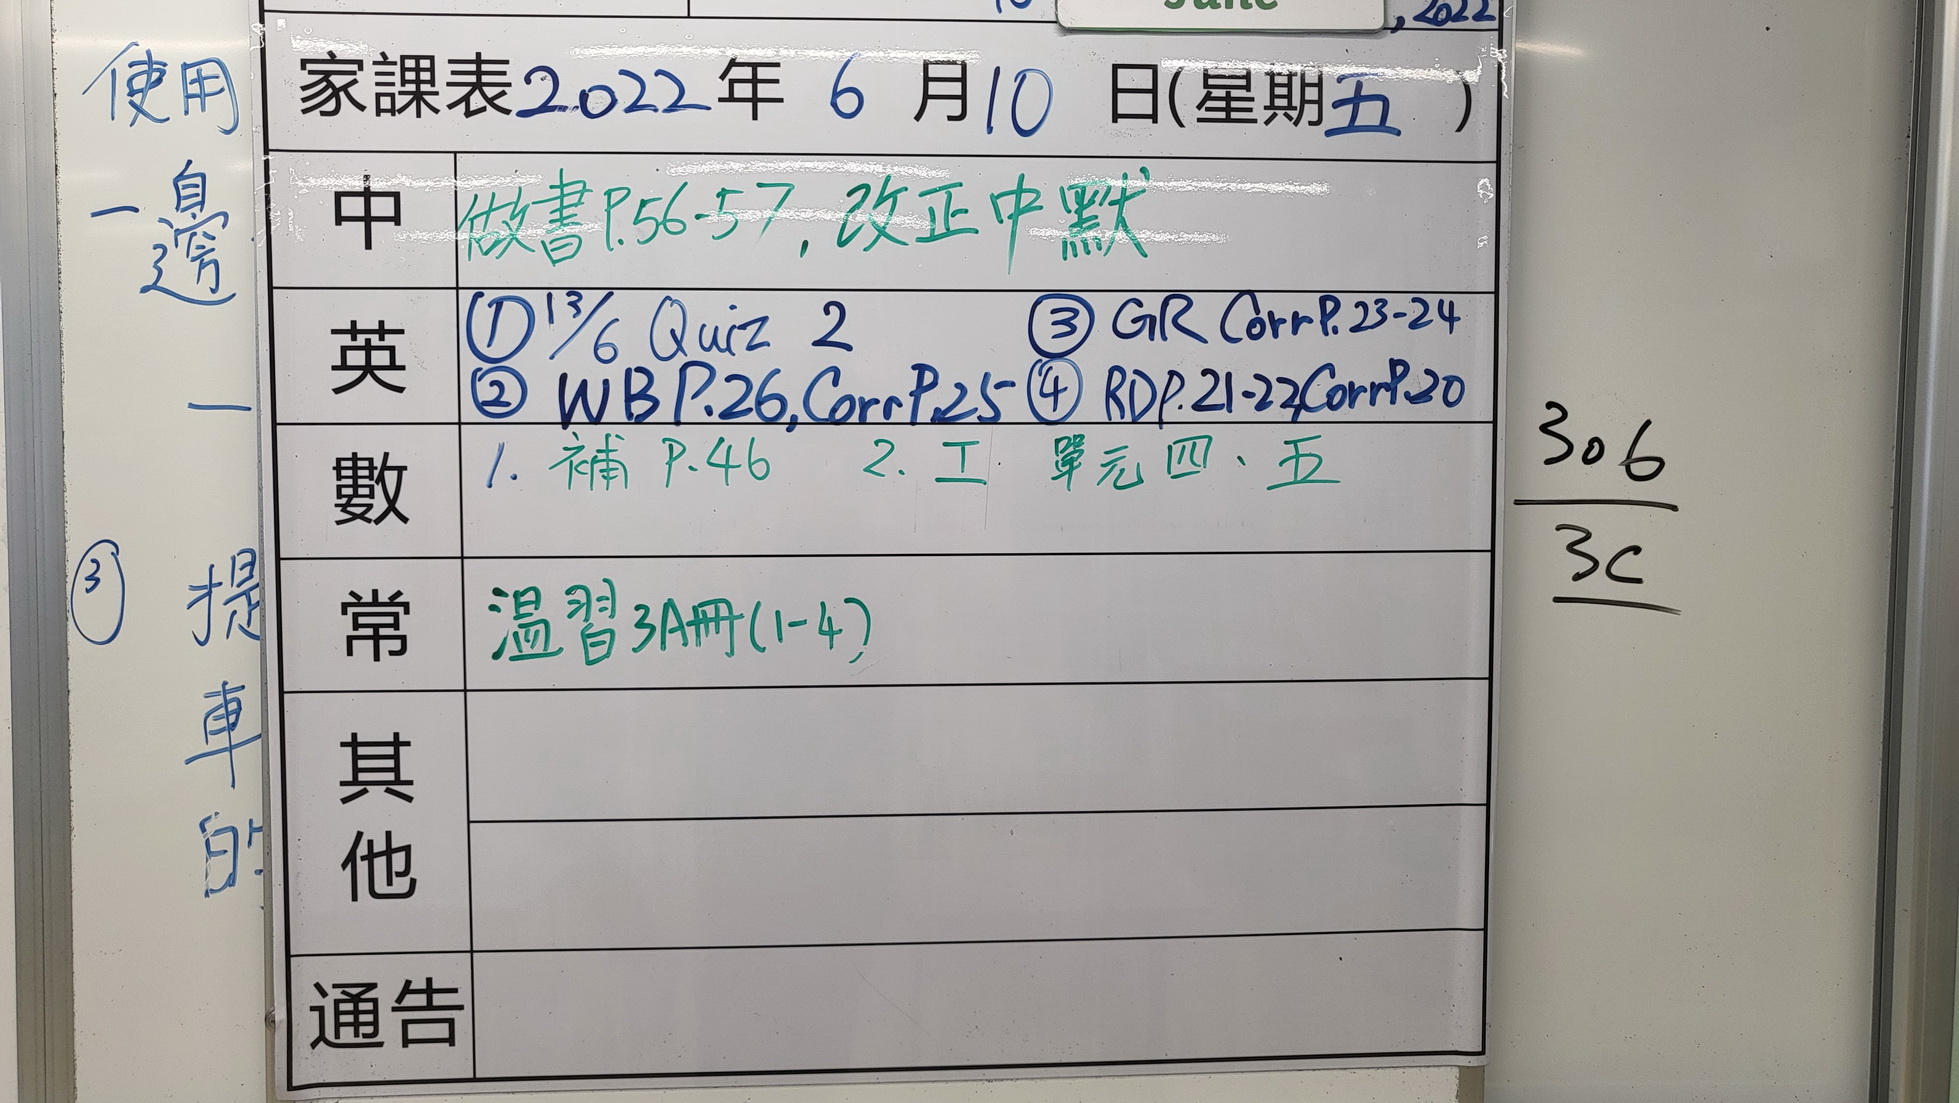 June
10 , 2022
家課表2022年 6 月10 日(星期五 )
中 做書P.56-57, 改正中默
英 ① 13/6 Quiz 2 ③ GR Corr P.23-24
② WB P.26, Corr P.25 ④ RD P.21-22, Corr P.20
數 1. 補 P.46 2. 工 單元四、五
常 溫習3A冊(1-4)
其他
通告
使用
一邊
一
③ 提
車
的
306
3C